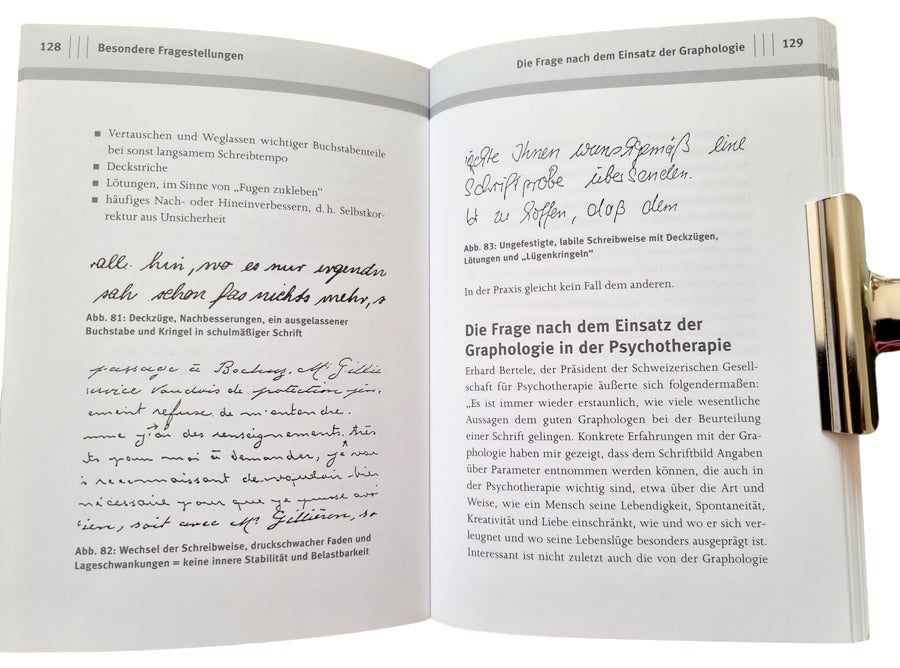 128 Besondere Fragestellungen
Vertauschen und Weglassen wichtiger Buchstabenteile
bei sonst langsamem Schreibtempo
Deckstriche
Lötungen, im Sinne von „Fugen zukleben“
häufiges Nach- oder Hineinverbessern, d. h. Selbstkor-
rektur aus Unsicherheit
alle hin, wo es nur irgendw
sah schon fas nichts mehr, s
Abb. 81: Deckzüge, Nachbesserungen, ein ausgelassener
Buchstabe und Kringel in schulmäßiger Schrift
passage à Mr Gillié
service Vaudois de protection
refuse de m'entendre.
j'ai des renseignements très
à demander,
reconnaissant de bien
nécessaire pour que je puisse
soit avec Mr Gilliéron, so
Abb. 82: Wechsel der Schreibweise, druckschwacher Faden und
Lageschwankungen = keine innere Stabilität und Belastbarkeit
Die Frage nach dem Einsatz der Graphologie 129
Ihnen wunschgemäß eine
Schriftprobe übersenden.
zu hoffen, daß dem
Abb. 83: Ungefestigte, labile Schreibweise mit Deckzügen,
Lötungen und „Lügenkringeln“
In der Praxis gleicht kein Fall dem anderen.
Die Frage nach dem Einsatz der
Graphologie in der Psychotherapie
Erhard Bertele, der Präsident der Schweizerischen Gesell-
schaft für Psychotherapie äußerte sich folgendermaßen:
„Es ist immer wieder erstaunlich, wie viele wesentliche
Aussagen dem guten Graphologen bei der Beurteilung
einer Schrift gelingen. Konkrete Erfahrungen mit der Gra-
phologie haben mir gezeigt, dass dem Schriftbild Angaben
über Parameter entnommen werden können, die auch in
der Psychotherapie wichtig sind, etwa über die Art und
Weise, wie ein Mensch seine Lebendigkeit, Spontaneität,
Kreativität und Liebe einschränkt, wie und wo er sich ver-
leugnet und wo seine Lebenslüge besonders ausgeprägt ist.
Interessant ist nicht zuletzt auch die von der Graphologie